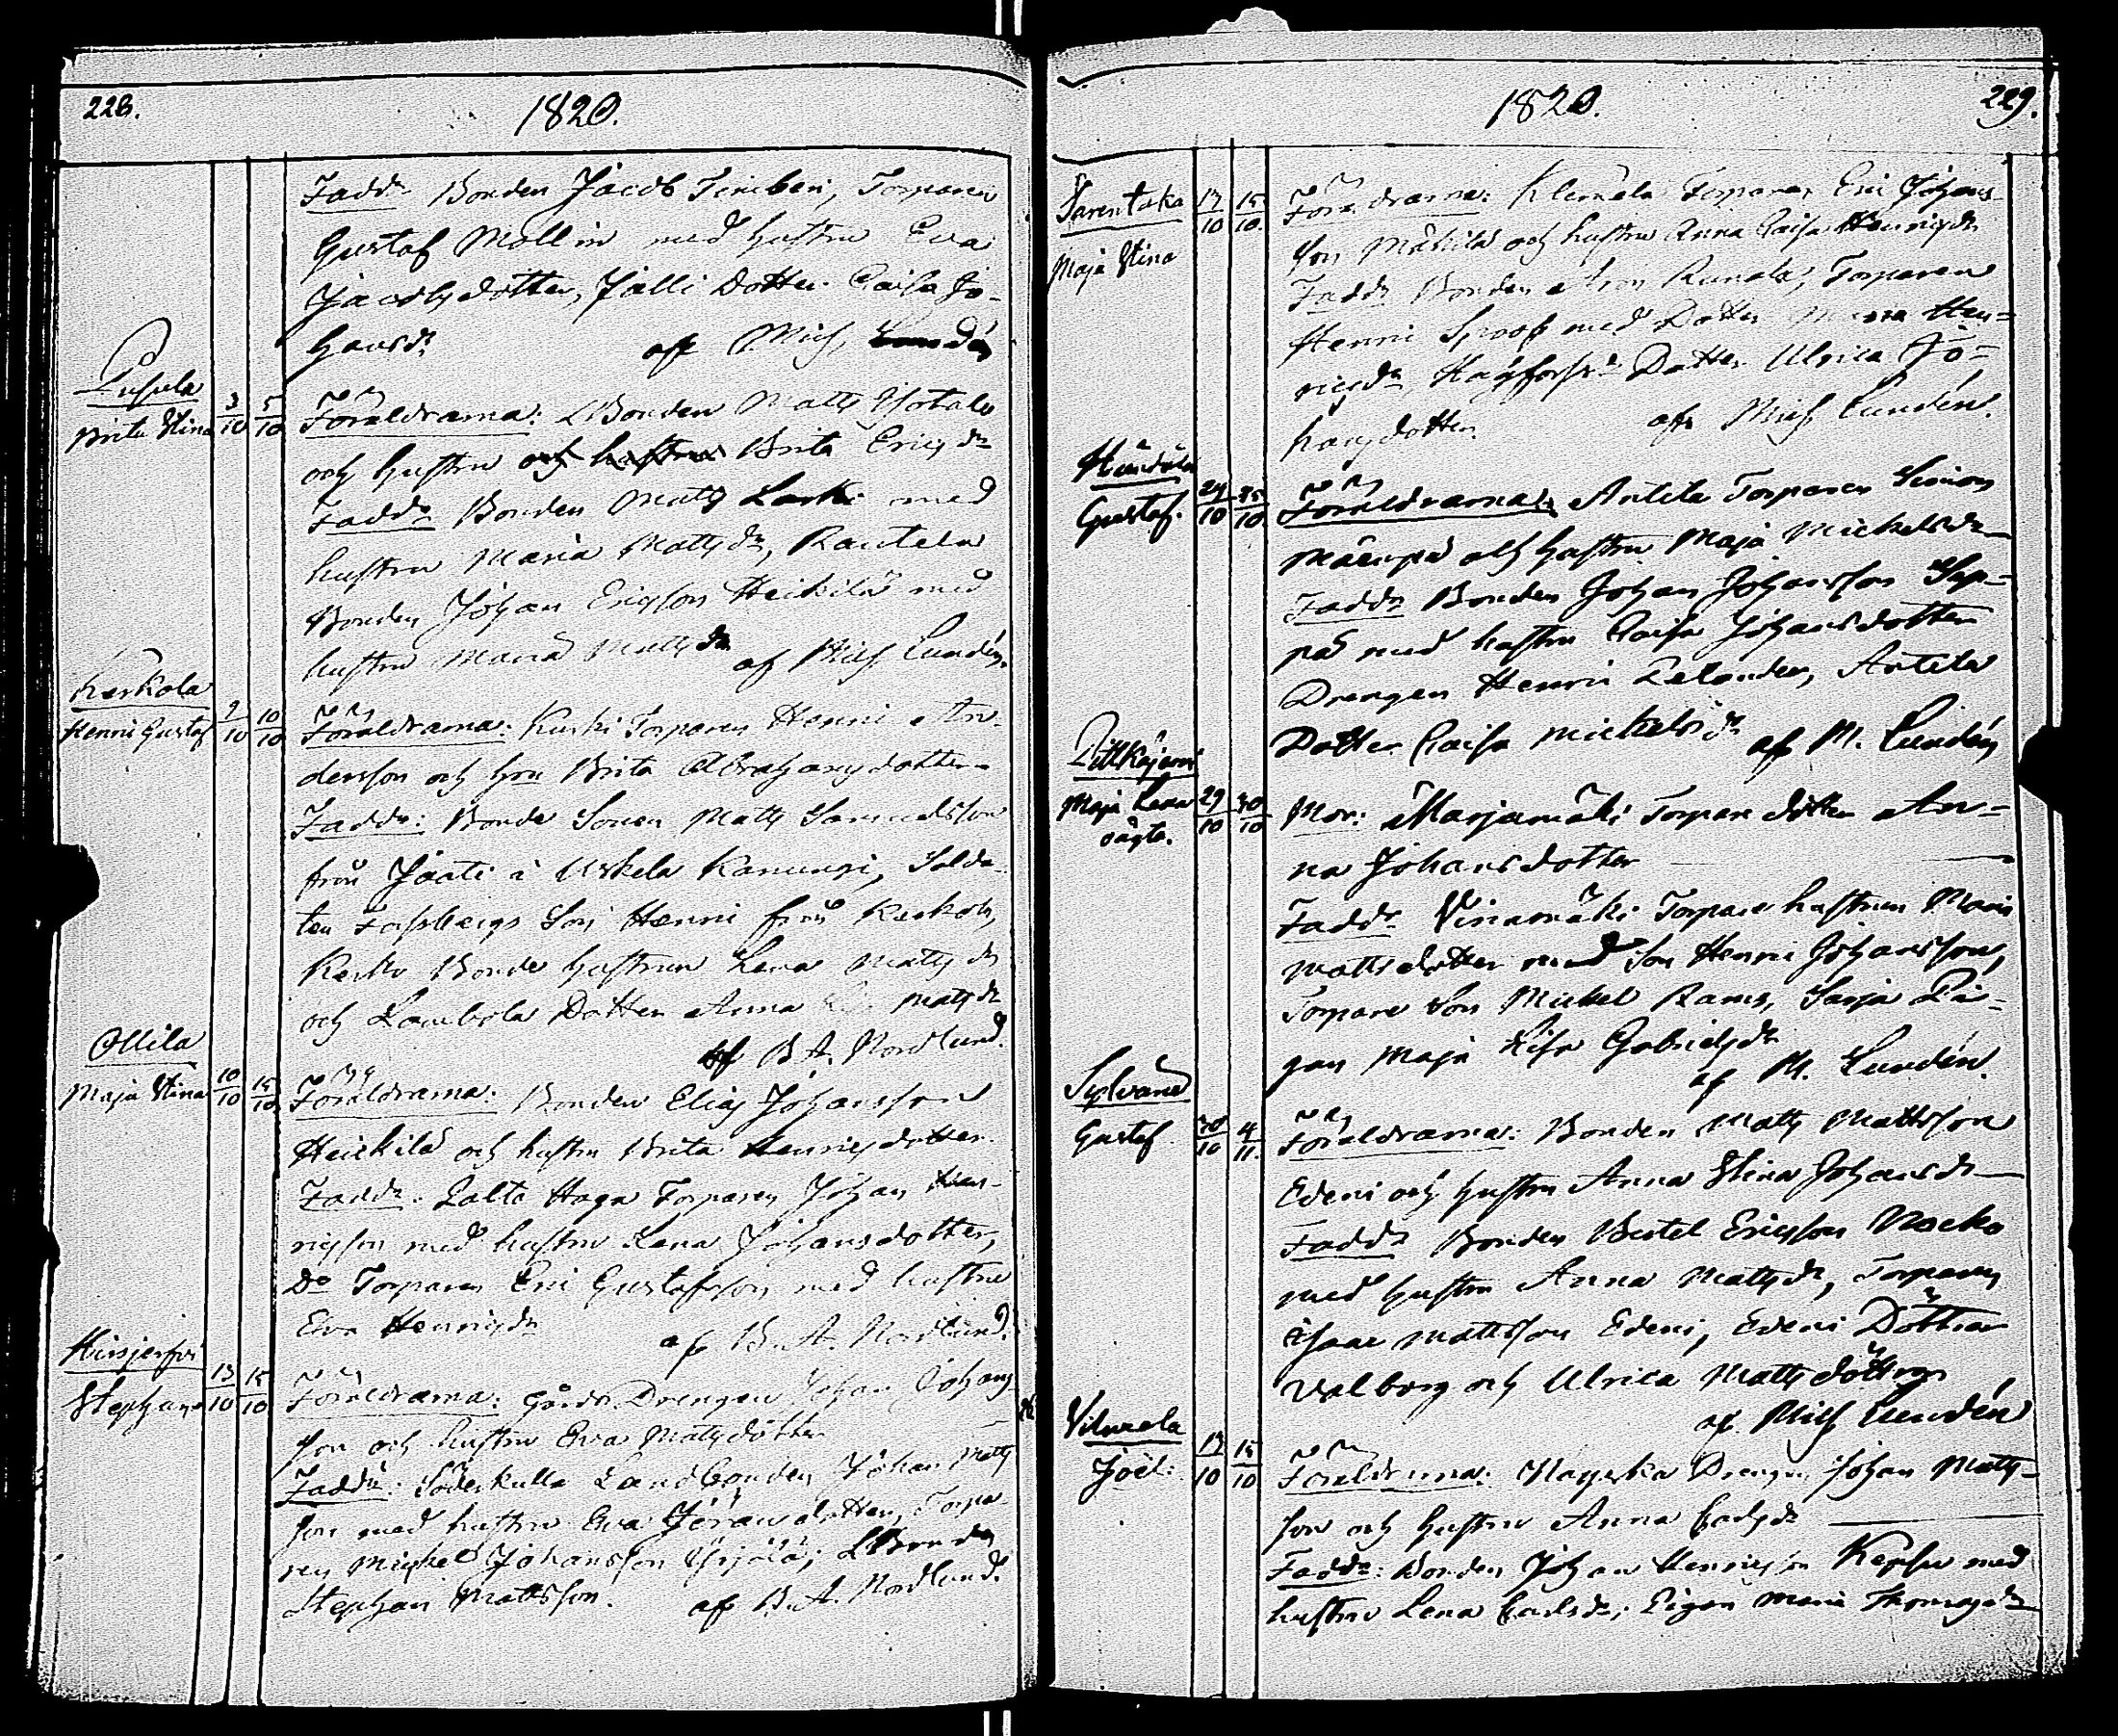 228.
1820.
Fadd:r Bonden Jacob Simben, Torparen
Gustaf Mollin med hustru Eva
Jacobsdotter, Jälli Dotter Caisa Jo-
hansd:r af Mich. Lundén
Pusula
Brita Stina 3/10 5/10
Föräldrarna: Bonden Matts Isotalo
och hustru och hustru Brita Ericsd:r
Fadd:r Bonden Matts Laski med
hustru Maria Mattsd:r, Rautela
Bonden Johan Ericsson Heickilä med
hustru Maria Mattsd:r af Mich. Lundén.
Kärkola
Henric Gustaf 9/10 10/10
Föräldrarna: Kurki Torparen Henric An-
dersson och hon Brita Abrahamsdotter
Fadd:r: Bonde Sonen Matts Samuelsson
från Jaati i Uskela, Solda-
ten Son Henric från
Bonde hustrun Lena Mattsd:r
och Dotter Anna Mattsd:r
af B. A. Nordlund.
Ollila
Maja Stina 10/10 15/10
Föräldrarna: Bonden Elias Johansson
Heickilä och hustru Brita Henricsdotter.
Fadd:r: Haga Torparen Johan Hen-
ricsson med hustru Lena Johansdotter,
D:o Torparen Eric Gustafsson med hustru
Eva Henricsd:r af B. A. Nordlund.
Hirsjerfvi
Stephan 13/10 15/10
Föräldrarna: Gårds Drengen Johan Johans-
son och hustru Eva Mattsdotter
Fadd:r: Söderkulla Landbonden Johan Matts
son med hustru Eva Göransdotter, Torpa-
ren Mickel Johansson Yrjölä,
Stephan Mattsson. af B. A. Nordlund.
1820.
229.
Sarentaka 13/10 15/10
Maja Stina
Föräldrarna: Klemelä Torparen Eric Johans-
son Mäkilä och hustru Anna Caisa Henricsd:r
Fadd:r Bonden Aron Runala, Torparen
Henric Sproof med Dotter Maria Hen-
ricsd:r, Dotter Ulrica Jo-
hansdotter. af Mich. Lundén.
Gustaf. 24/10 25/10
Föräldrarna: Antila Torparen Simon
Mäenpä och hustru Maja Mickelsd:r
Fadd:r Bonden Johan Johansson Sep-
pä med hustru Caisa Johansdotter
Drengen Henric Zelander, Antila
Dotter Caisa Mickelsd:r af M. Lundén
Pitkäjerfvi
Maja Lena 29/10 30/10
oägta.
Mor: Marjamäki Torpare dotter An-
na Johansdotter
Fadd:r Vinamäki Torpare hustrun Maria
Mattsdotter med Son Henric Johansson,
Torpare Son Mickel Rams, Sarja Pi-
gan Maja Lisa Gabrielsd:r
af M. Lundén.
Sylvänä
Gustaf 30/10 4/11.
Föräldrarna: Bonden Matts Mattsson
Edeni och hustru Anna Stina Johansd:r
Fadd:r Bonden Bertel Ericsson Nocko
med hustru Anna Mattsd:r, Torparen
Isaac Mattsson Edeni, Edeni Döttrar
Valborg och Ulrica Matts döttrar
af Mich. Lundén
Viluxela
Joël: 13/10 15/10
Föräldrarna: Drengen Johan Matts-
son och hustru Anna Carlsd:r
Fadd:r: Bonden Johan Henricsson Kepsu med
hustru Lena Carlsd:r; Pigan Maria Thomasd:r